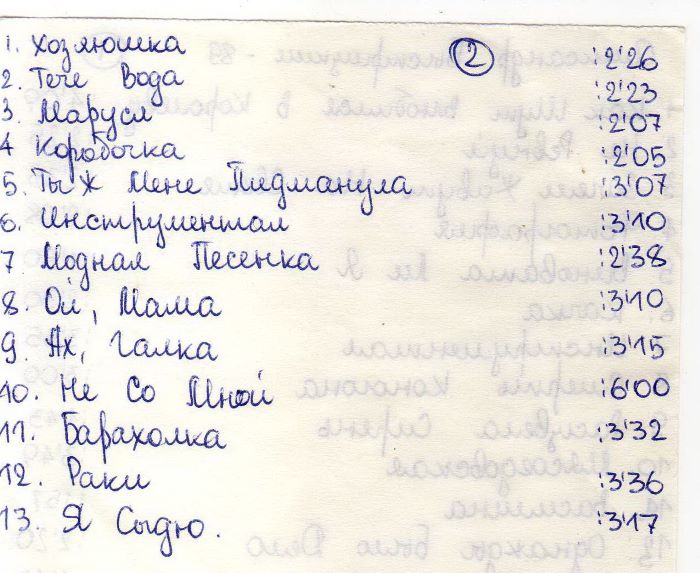 1. Хозяюшка ② :2'26
2. Тече Вода :2'23
3. Маруся :2'07
4 Коробочка :2'05
5. Ты Ж Мене Пидманула :3'07
6. Инструментал :3'10
7 Модная Песенка :2'38
8. Ой, Мама :3'10
9. Ах, Галка :3'15
10. Не Со Мной :6'00
11. Барахолка :3'32
12. Раки :3'36
13. Я Сыдю. :3'17